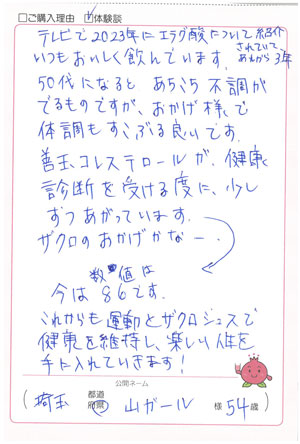 □ご購入理由 ☑体験談
テレビで2023年にエラグ酸について紹介
されていて、
あれから3年
いつもおいしく飲んでいます。
50代になると あちらこちら 不調が
でるものですが、おかげ様で
体調もすこぶる良いです。
善玉コレステロールが、健康
診断を受ける度に、少し
ずつあがっています。
ザクロのおかげかなー。
数値は
今は86です。
これからも運動とザクロジュースで
健康を維持し、楽しい人生を
手に入れていきます!
公開ネーム
(埼玉 都道府県 山ガール 様 54歳)